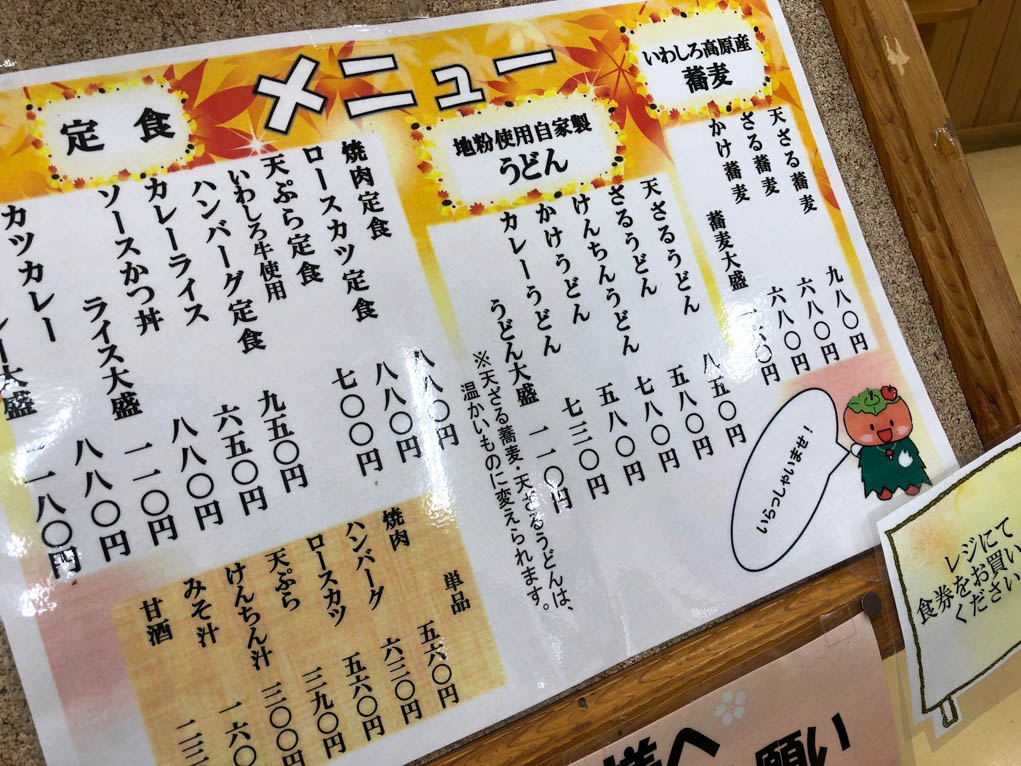 メニュー
いわしろ高原産
蕎麦
天ざる蕎麦 九八〇円
ざる蕎麦 六八〇円
かけ蕎麦 六八〇円
蕎麦大盛 一六〇円
地粉使用自家製
うどん
天ざるうどん 八五〇円
ざるうどん 五八〇円
けんちんうどん 七八〇円
かけうどん 五八〇円
カレーうどん 七三〇円
うどん大盛 一一〇円
※天ざる蕎麦・天ざるうどんは、
温かいものに変えられます。
定食
焼肉定食 八八〇円
ロースカツ定食 八八〇円
天ぷら定食 七〇〇円
いわしろ牛使用
ハンバーグ定食 九五〇円
カレーライス 六五〇円
ソースかつ丼 八八〇円
ライス大盛 一一〇円
カツカレー 八八〇円
ー大盛 一八〇円
単品
焼肉 五六〇円
ハンバーグ 六三〇円
ロースカツ 五六〇円
天ぷら 三九〇円
けんちん汁 三〇〇円
みそ汁 一六〇
甘酒
いらっしゃいませ！
レジにて
食券をお買い
ください
様へ
願い